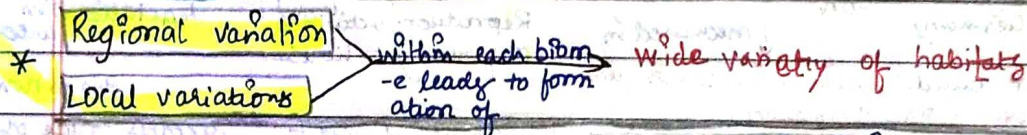 * Regional variation
Local variations
within each biom
-e leads to form
ation of
wide varietry of habitats